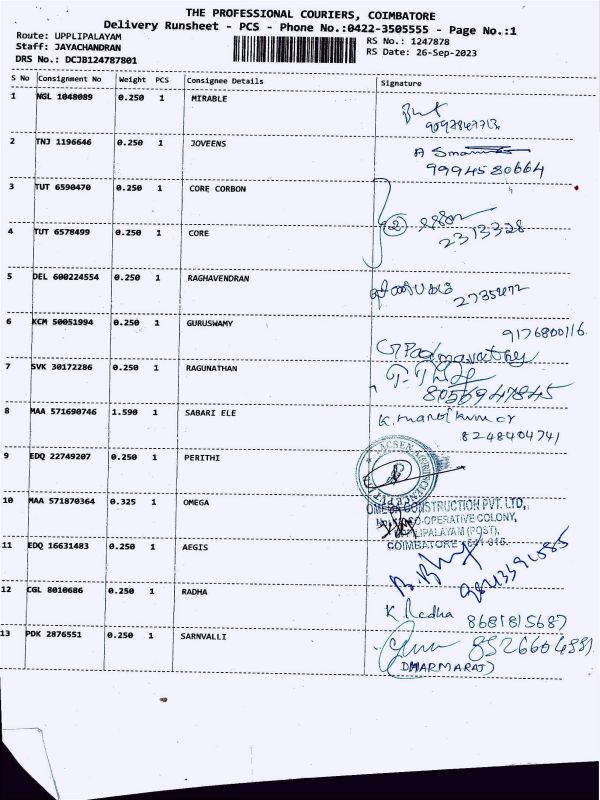 THE PROFESSIONAL COURIERS, COIMBATORE
Delivery Runsheet - PCS - Phone No.:0422-3505555 - Page No.:1
Route: UPPLIPALAYAM
Staff: JAYACHANDRAN
DRS No.: DCJB124787801
RS No.: 1247878
RS Date: 26-Sep-2023
S No Consignment No Weight PCS Consignee Details Signature
1 NGL 1048089 0.250 1 MIRABLE
2 TNJ 1196646 0.250 1 JOVEENS
9994580664
3 TUT 6590470 0.250 1 CORE CORBON
4 TUT 6578499 0.250 1 CORE
2 2313328
5 DEL 600224554 0.250 1 RAGHAVENDRAN
6 KCM 50051994 0.250 1 GURUSWAMY
9176800116
G Padmavathy
7 SVK 30172286 0.250 1 RAGUNATHAN
8056947845
8 MAA 571690746 1.590 1 SABARI ELE
K. manoj kumar
8248404741
9 EDQ 22749207 0.250 1 PERITHI
10 MAA 571870364 0.325 1 OMEGA
OMEGA CONSTRUCTION PVT. LTD.,
CO-OPERATIVE COLONY,
UPPLIPALAYAM (POST),
COIMBATORE - 641 015.
11 EDQ 16631483 0.250 1 AEGIS
12 CGL 8010686 0.250 1 RADHA
K Radha 8681815687
13 PDK 2876551 0.250 1 SARNVALLI
8526604981
DHARMARAJ